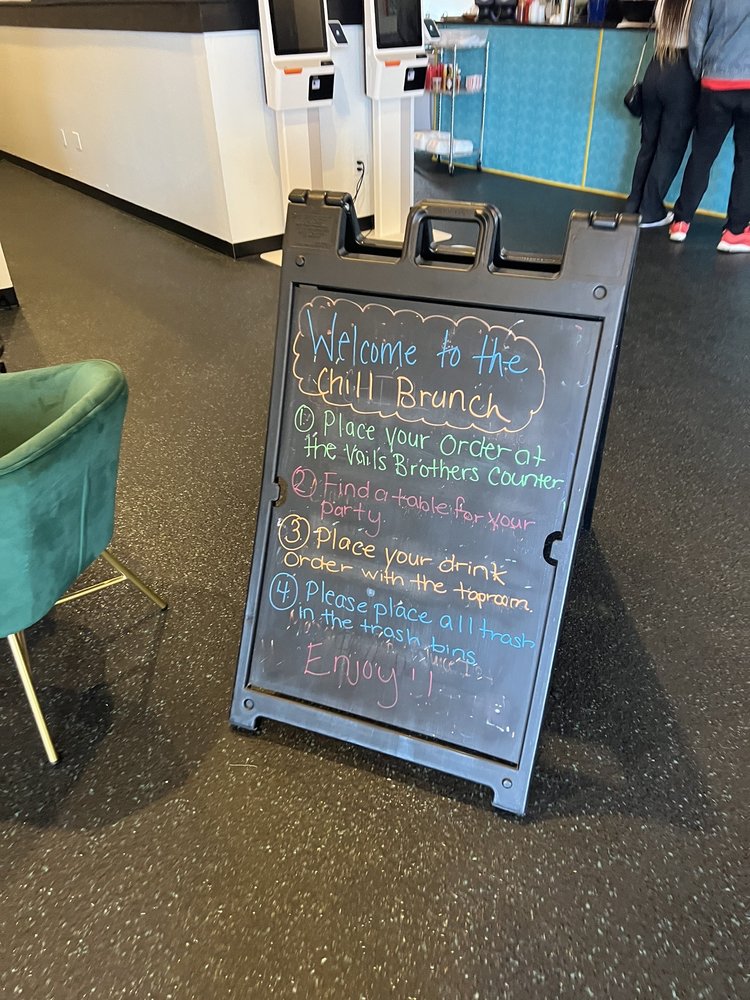 Welcome to the
Chill Brunch
① Place your order at
the Vail's Brothers Counter.
② Find a table for your
party.
③ Place your drink
order with the taproom.
④ Please place all trash
in the trash bins
Enjoy!!